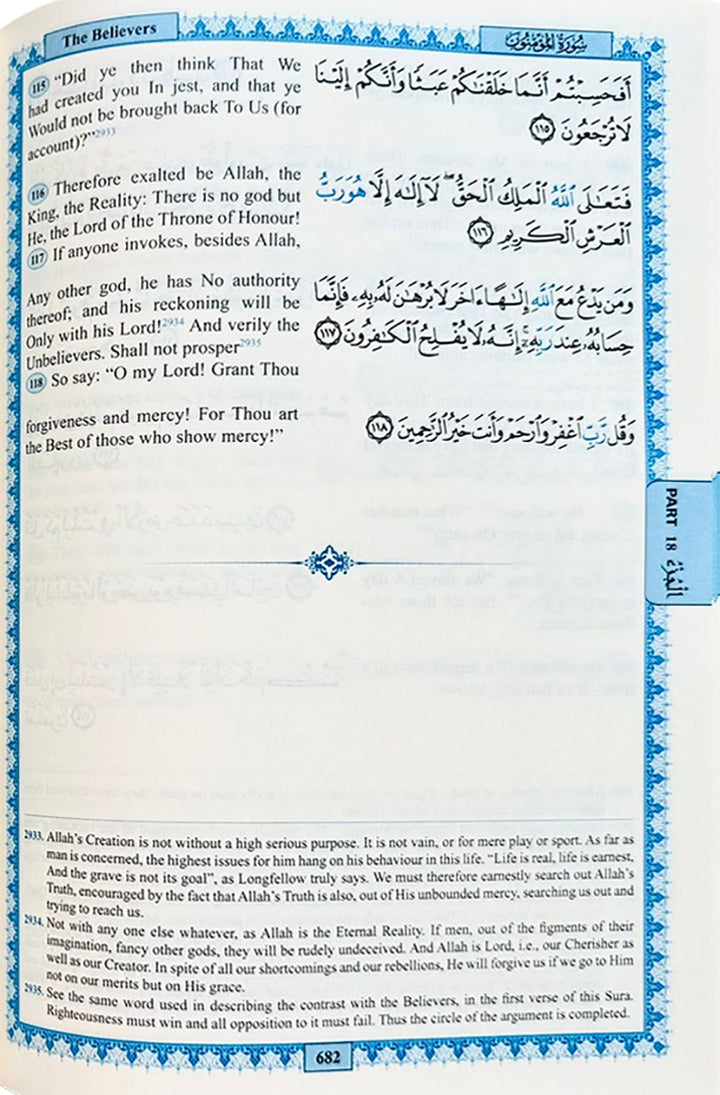 The Believers
سُورَةُ الْمُؤْمِنُون
115 “Did ye then think That We
had created you In jest, and that ye
Would not be brought back To Us (for
account)?”2933
أَفَحَسِبْتُمْ أَنَّمَا خَلَقْنَاكُمْ عَبَثًا وَأَنَّكُمْ إِلَيْنَا
لَا تُرْجَعُونَ ١١٥
116 Therefore exalted be Allah, the
King, the Reality: There is no god but
He, the Lord of the Throne of Honour!
117 If anyone invokes, besides Allah,
فَتَعَالَى اللَّهُ الْمَلِكُ الْحَقُّ ۖ لَا إِلَٰهَ إِلَّا هُوَ رَبُّ
الْعَرْشِ الْكَرِيمِ ١١٦
Any other god, he has No authority
thereof; and his reckoning will be
Only with his Lord!2934 And verily the
Unbelievers. Shall not prosper2935
118 So say: “O my Lord! Grant Thou
وَمَن يَدْعُ مَعَ اللَّهِ إِلَٰهًا ءَاخَرَ لَا بُرْهَانَ لَهُ بِهِ فَإِنَّمَا
حِسَابُهُ عِندَ رَبِّهِ ۚ إِنَّهُ لَا يُفْلِحُ الْكَافِرُونَ ١١٧
forgiveness and mercy! For Thou art
the Best of those who show mercy!”
وَقُل رَّبِّ اغْفِرْ وَارْحَمْ وَأَنتَ خَيْرُ الرَّاحِمِينَ ١١٨
PART 18 الْجُزْءُ
2933. Allah’s Creation is not without a high serious purpose. It is not vain, or for mere play or sport. As far as
man is concerned, the highest issues for him hang on his behaviour in this life. “Life is real, life is earnest,
And the grave is not its goal”, as Longfellow truly says. We must therefore earnestly search out Allah’s
Truth, encouraged by the fact that Allah’s Truth is also, out of His unbounded mercy, searching us out and
trying to reach us.
2934. Not with any one else whatever, as Allah is the Eternal Reality. If men, out of the figments of their
imagination, fancy other gods, they will be rudely undeceived. And Allah is Lord, i.e., our Cherisher as
well as our Creator. In spite of all our shortcomings and our rebellions, He will forgive us if we go to Him
not on our merits but on His grace.
2935. See the same word used in describing the contrast with the Believers, in the first verse of this Sura.
Righteousness must win and all opposition to it must fail. Thus the circle of the argument is completed.
682